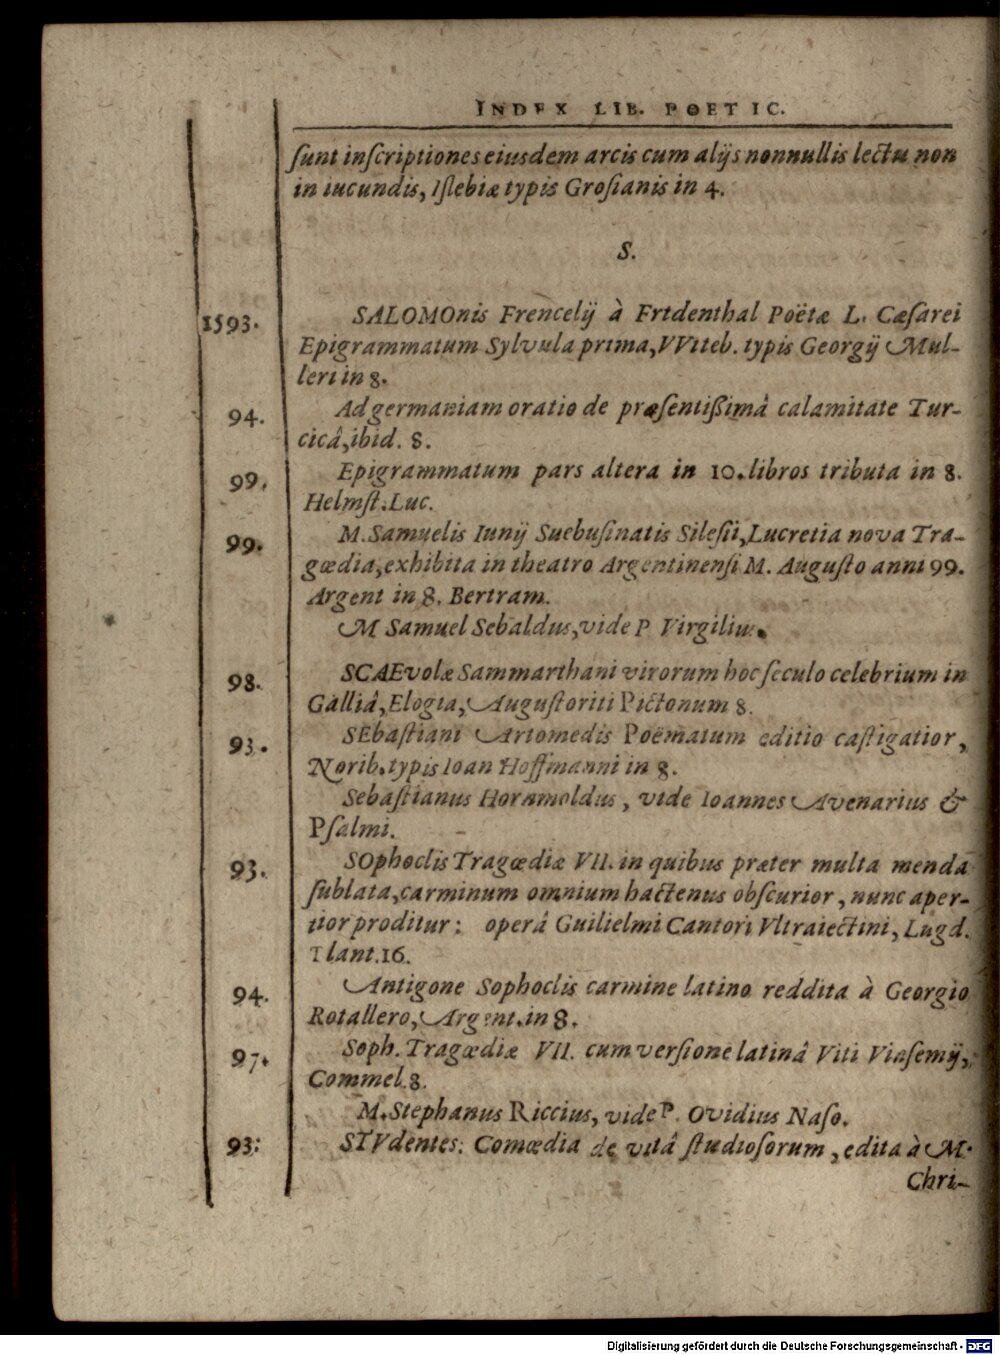 INDEX LIB. POETIC.
ſunt inſcriptiones eiusdem arcis cum alijs nonnullis lectu non
in iucundis, Iſlebiæ typis Groſianis in 4.
S.
1593. SALOMOnis Frencelij à Frtdenthal Poëtæ L. Cæſarei
Epigrammatum Sylvula prima, VViteb. typis Georgij Mul-
leri in 8.
94. Ad germaniam oratio de præſentißimâ calamitate Tur-
cicâ, ibid. 8.
99. Epigrammatum pars altera in 10. libros tributa in 8.
Helmſt. Luc.
99. M. Samuelis Iunij Suebuſinatis Sileſii, Lucretia nova Tra-
gœdia, exhibita in theatro Argentinenſi M. Auguſto anni 99.
Argent in 8. Bertram.
M Samuel Sebaldus, vide P Virgilius.
98. SCAEvolæ Sammarthani virorum hoc ſeculo celebrium in
Galliâ, Elogia, Auguſtoriti Pictonum 8.
93. SEbaſtiani Artomedis Poëmatum editio caſtigatior,
Norib. typis Ioan Hoffmanni in 8.
Sebaſtianus Hornmoldus, vide Ioannes Avenarius &
Pſalmi.
93. SOphoclis Tragœdiæ VII. in quibus præter multa menda
ſublata, carminum omnium hactenus obſcurior, nunc aper-
tior proditur: operâ Guilielmi Cantori Vltraiectini, Lugd.
Plant. 16.
94. Antigone Sophoclis carmine latino reddita à Georgio
Rotallero, Argent. in 8.
97. Soph. Tragœdiæ VII. cum verſione latinâ Viti Viaſemij,
Commel. 8.
M. Stephanus Riccius, vide P. Ovidius Naſo.
93: STVdentes: Comœdia de vitâ ſtudioſorum, edita à M.
Chri-
Digitalisierung gefördert durch die Deutsche Forschungsgemeinschaft - DFG